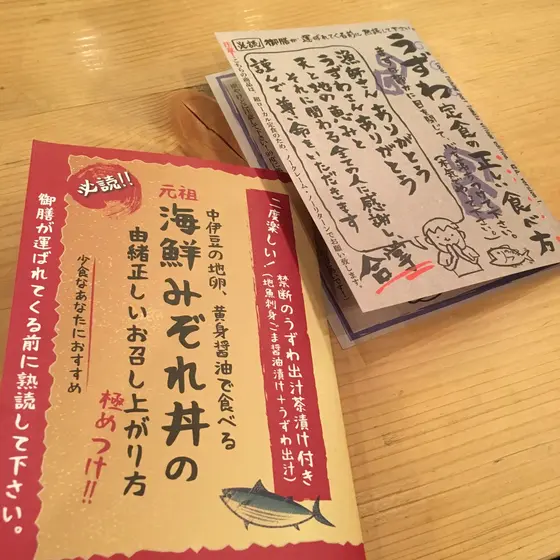 必読!!
二度楽しい!
禁断のうずわ出汁茶漬け付き
(地魚刺身ごま醤油漬け+うずわ出汁)
中伊豆の地卵、黄身醤油で食べる
元祖
海鮮みぞれ丼の
由緒正しいお召し上がり方
極めつけ!!
少食なあなたにおすすめ
御膳が運ばれてくる前に熟読して下さい。
必読
御膳が運ばれてくる前に熟読して下さい
うずわ定食の正しい食べ方
漁師さんありがとう
うずわさんありがとう
天と地の恵みと
それに関わる全ての人に感謝し、
謹んで尊い命をいただきます
合掌
こちらの商品は、超ローカル定食のため、ノークレーム・ノーリターンでお願い致します。